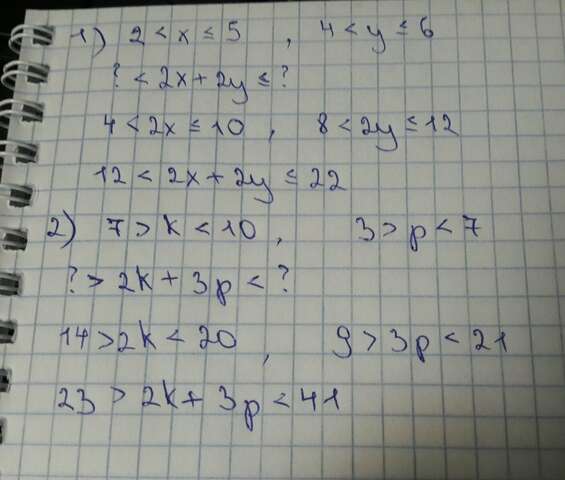 1) 2 < x ≤ 5 , 4 < y ≤ 6
? < 2x + 2y ≤ ?
4 < 2x ≤ 10 , 8 < 2y ≤ 12
12 < 2x + 2y ≤ 22
2) 7 > k < 10 , 3 > p < 7
? > 2k + 3p < ?
14 > 2k < 20 , 9 > 3p < 21
23 > 2k + 3p < 41